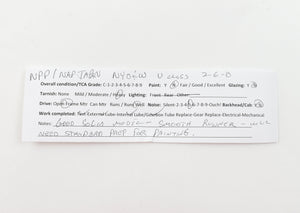 NPP / NAP JAPAN NYC&HRR U CLASS 2-6-0
Overall condition/TCA Grade: C-1-2-3-4-5-6-7-8-9 Paint: Y Fair / Good / Excellent Glazing: Y
Tarnish: None Mild / Moderate / Heavy Lighting: Front Rear Other
Drive: Open Frame Mtr Can Mtr Runs / Runs Well Noise: Silent-2-3-4-5-6-7-8-9-Ouch! Backhead/Cab:
Work completed: Test External Lube-Internal Lube/Gearbox Tube Replace-Gear Replace-Electrical-Mechanical
Notes: GOOD SOLID MODEL - SMOOTH RUNNER - WILL
NEED STANDARD PREP FOR PAINTING.